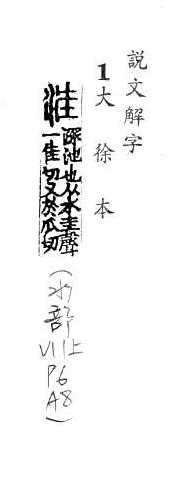 説文解字
1大徐本
洼
深池也从水圭聲
一佳切又於瓜切
(水部VII上P6A8)